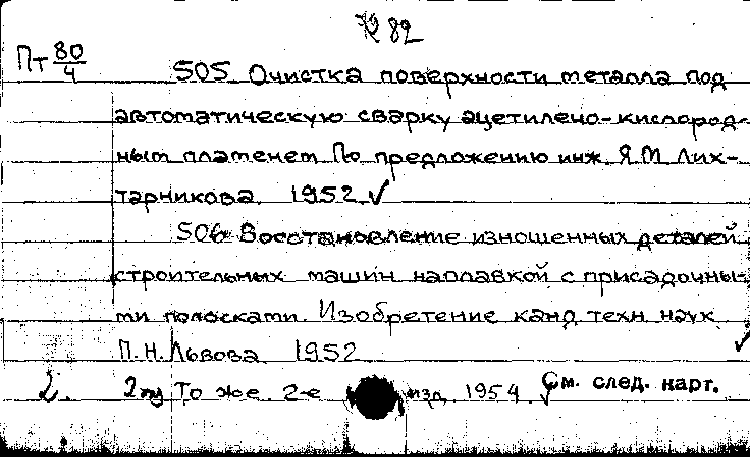 82
Пт 80/4
505. Очистка поверхности металла под
автоматическую сварку ацетилено-кислород-
ным пламенем По предложению инж. Я.М. Лих-
тарникова. 1952 ✓
506 Восстановление изношенных деталей
строительных машин наплавкой с присадочны-
ми полосками. Изобретение канд. техн. наук
П.Н. Львова 1952 ✓
2. То же. 2-е изд. 1954. ✓ См. след. карт.